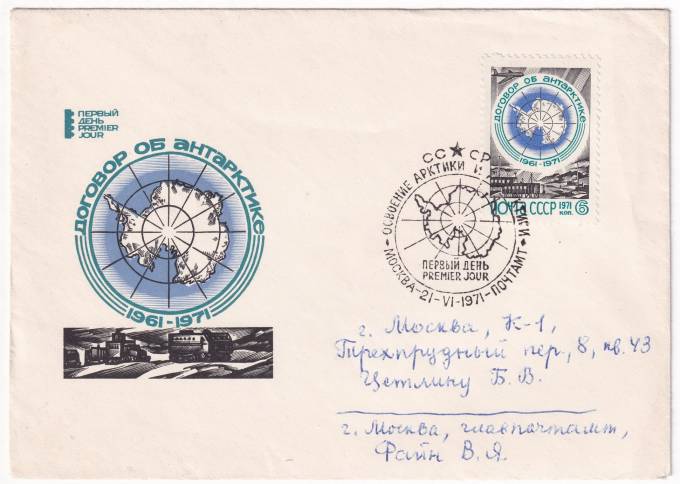 ПЕРВЫЙ
ДЕНЬ
PREMIER
JOUR
ДОГОВОР ОБ АНТАРКТИКЕ
1961-1971
ДОГОВОР ОБ АНТАРКТИКЕ
1961-1971
ПОЧТА СССР 1971
КОП. 6
СС СР
ОСВОЕНИЕ АРКТИКИ И
ПЕРВЫЙ ДЕНЬ
PREMIER JOUR
МОСКВА-21-VI-1971-ПОЧТАМТ
г. Москва, К-1,
Трехпрудный пер, 8, кв. 43
Цетлину Б. В.
г. Москва, главпочтамт,
Файн В. Я.